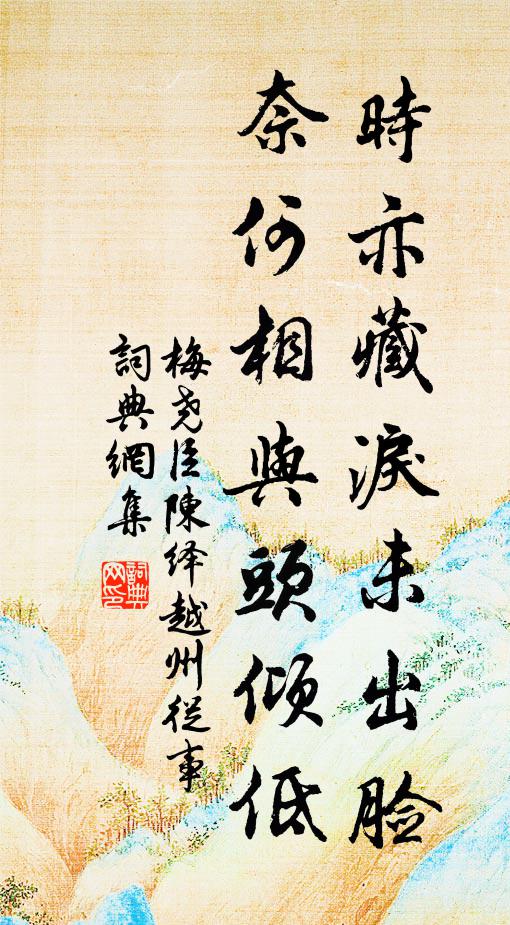 時亦藏淚未出脸
奈何相與頭傾低
梅尧臣陳绎越州從事
詞典網集
詞典网心